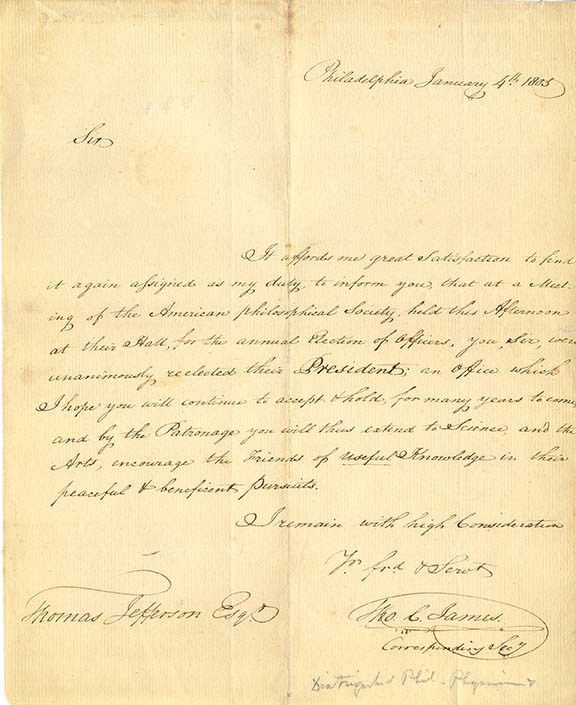 Philadelphia January 4th. 1805
Sir
It affords me great Satisfaction to find
it again assigned as my duty, to inform you, that at a Meet-
ing of the American philosophical Society, held this Afternoon
at their Hall, for the annual Election of Officers, you, Sir, were
unanimously reelected their President; an Office which
I hope you will continue to accept & hold, for many years to come,
and by the Patronage you will thus extend to Science, and the
Arts, encourage the Friends of useful Knowledge in their
peaceful & beneficent pursuits.
I remain with high Consideration
Yr. frd. & Servt
Thomas Jefferson Esqr.
Tho. C. James.
Corresponding Secy
Phil.